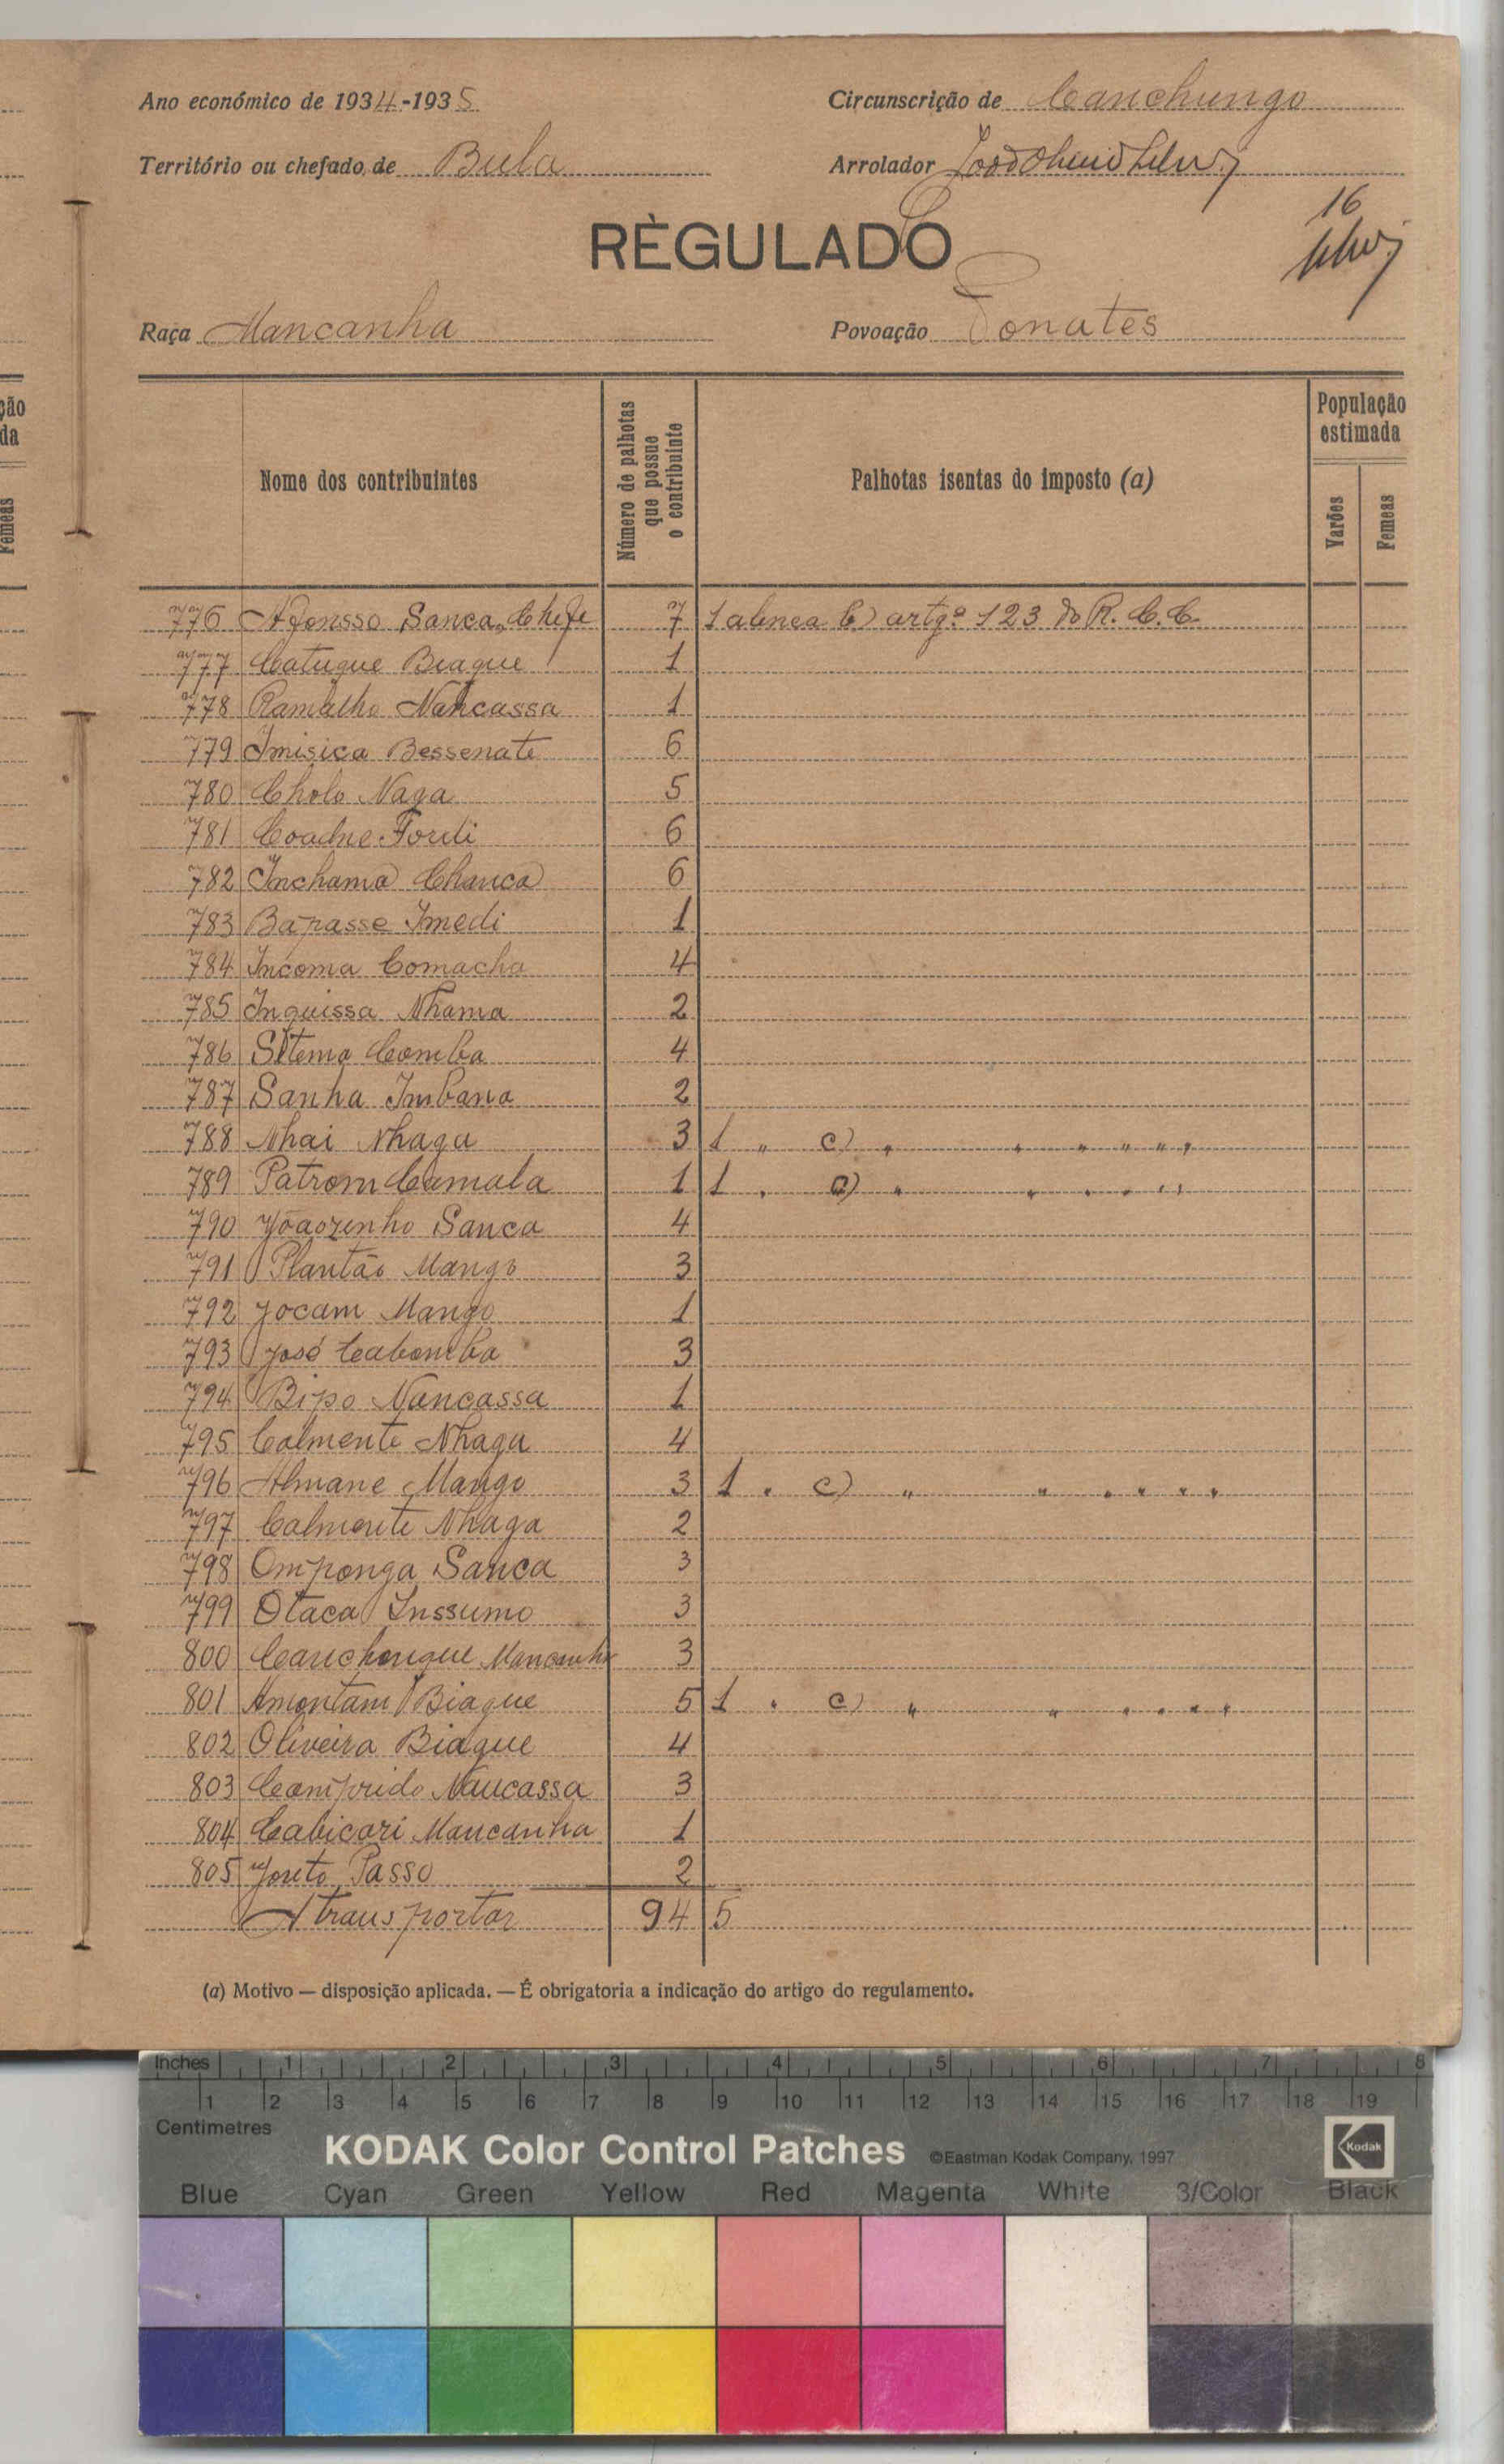 Ano económico de 1934-1935
Circunscrição de Canchungo
Território ou chefado de Bula
Arrolador
16
RÈGULADO
Raça Mancanha
Povoação Ponates
ção
da
Femeas
Nome dos contribuintes
Número de palhotas que possue o contribuinte
Palhotas isentas do imposto (a)
População estimada
Varões
Femeas
776 Afonsso Sanca, Chefe 7 1 alinea b) artgº 123 do R. C. C.
777 Catuque Biague 1
778 Ramalho Nancassa 1
779 Imisica Bessenate 6
780 Cholo Naga 5
781 Coadne Fordi 6
782 Inchama Chanca 6
783 Bapasse Imedi 1
784 Incoma Comacha 4
785 Inquissa Nhama 2
786 Sitema Comba 4
787 Sanha Imbana 2
788 Nhai Nhaga 3 1 " c) " " " " " "
789 Patrom Camala 1 1 " a) " " " " " "
790 Joãozinho Sanca 4
791 Plantão Mango 3
792 Jocam Mango 1
793 José Cabomba 3
794 Bipo Nancassa 1
795 Calmente Nhaga 4
796 Almane Mango 3 1 " c) " " " " " "
797 Calmente Nhaga 2
798 Omponga Sanca 3
799 Otaca Inssumo 3
800 Canchongue Mancanha 3
801 Amontam Biague 5 1 " c) " " " " " "
802 Oliveira Biague 4
803 Comprido Nancassa 3
804 Cabicari Mancanha 1
805 Joreto Passo 2
A transportar 94 5
(a) Motivo — disposição aplicada. — É obrigatoria a indicação do artigo do regulamento.
Inches 1 2 3 4 5 6 7 8
1 2 3 4 5 6 7 8 9 10 11 12 13 14 15 16 17 18 19
Centimetres
KODAK Color Control Patches ©Eastman Kodak Company, 1997 Kodak
Blue Cyan Green Yellow Red Magenta White 3/Color Black